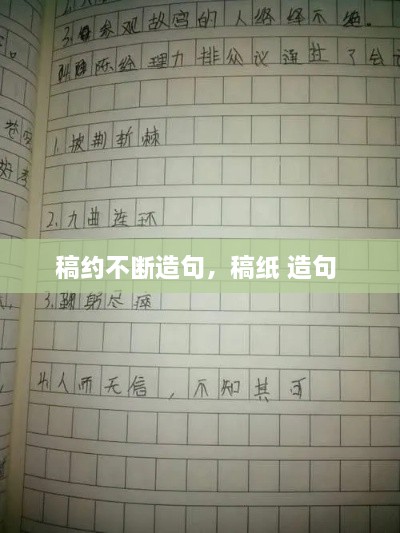 3.参观故宫的人络绎不绝。
陈经理力排众议通过了会
1.披荆斩棘
2.九曲连环
稿约不断造句，稿纸 造句
3.鞠躬尽瘁
4.人而无信，不知其可